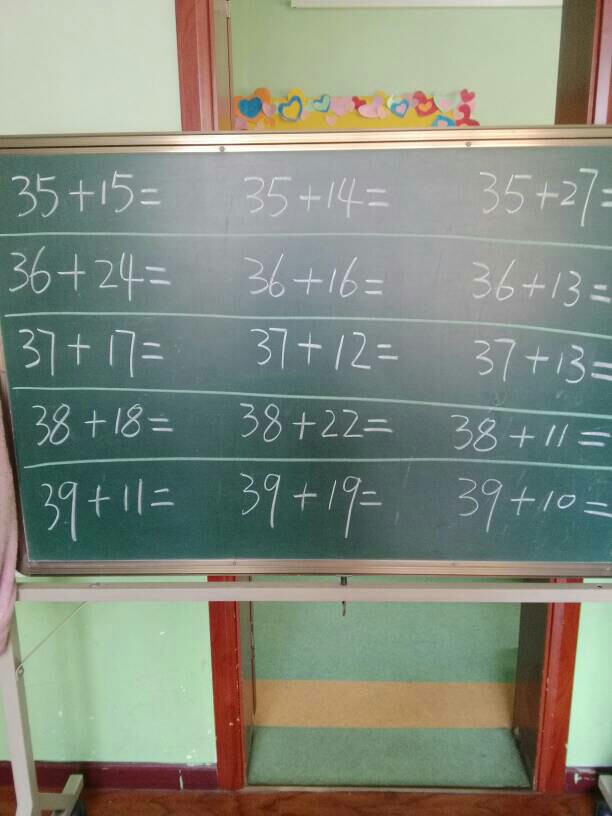 35+15= 35+14= 35+27=
36+24= 36+16= 36+13=
37+17= 37+12= 37+13=
38+18= 38+22= 38+11=
39+11= 39+19= 39+10=